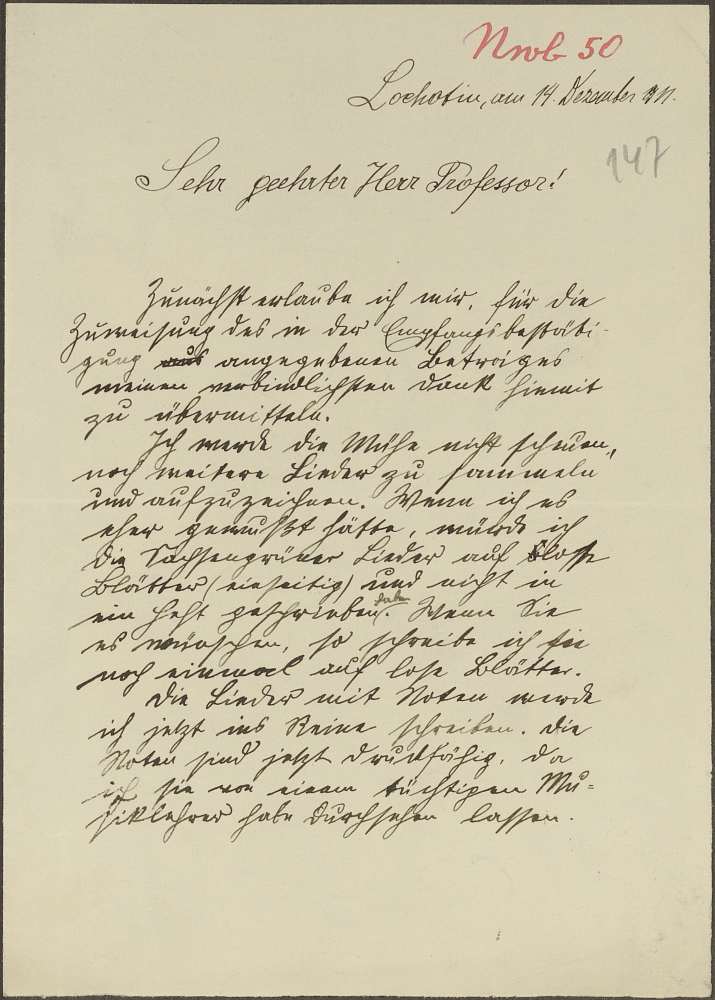 Nwb 50
Lochotin, am 14. Dezember 1911.
147
Sehr geehrter Herr Professor!
Zunächst erlaube ich mir, für die
Zuweisung des in der Empfangsbestäti-
gung aus angegebenen Betrages
meinen verbindlichsten Dank hiemit
zu übermitteln.
Ich werde die Mühe nicht scheuen,
noch weitere Lieder zu sammeln
und aufzuzeichnen. Wenn ich es
eher gewußt hätte, würde ich
die Sachsengrüner Lieder auf lose
Blätter (einseitig) und nicht in
ein Heft geschrieben haben. Wenn Sie
es wünschen, so schreibe ich sie
noch einmal auf lose Blätter.
Die Lieder mit Noten werde
ich jetzt ins Reine schreiben. Die
Noten sind jetzt druckfähig, da
ich sie von einem tüchtigen Mu-
siklehrer habe durchsehen lassen.